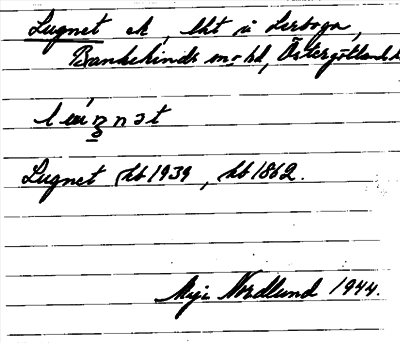 Lugnet ek, lht u Lerboga,
Bankekinds sn o hd, Östergötlands l
Lugnet hb 1939, hb 1862.
Maj Nordlund 1944.